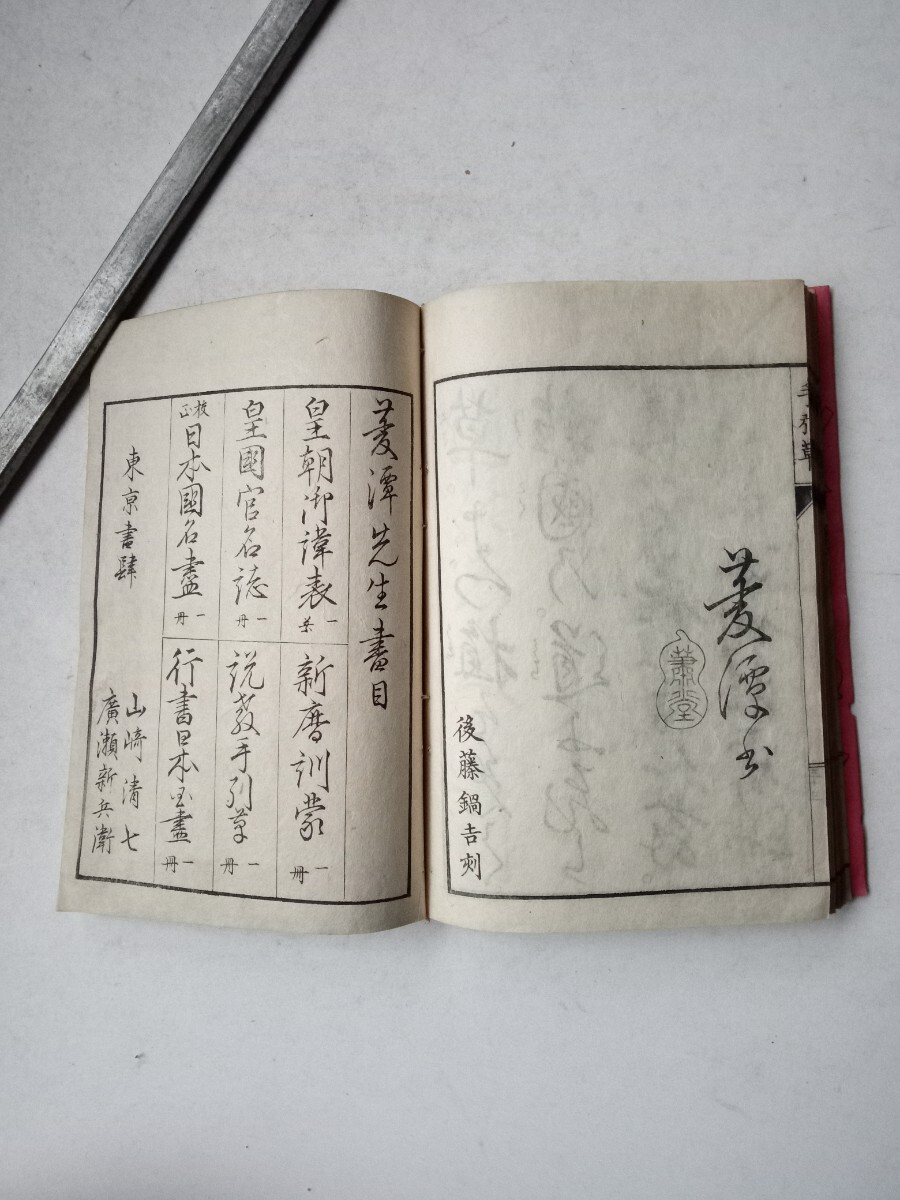 菱潭书
蕭堂
後藤鍋吉刻
菱潭先生書目
皇朝御諱表 一葉
新暦訓蒙 一冊
皇國官名誌 一冊
説教手引草 一冊
校正 日本國名盡 一冊
行書日本国盡 一冊
東京書肆
山崎清七
廣瀬新兵衛